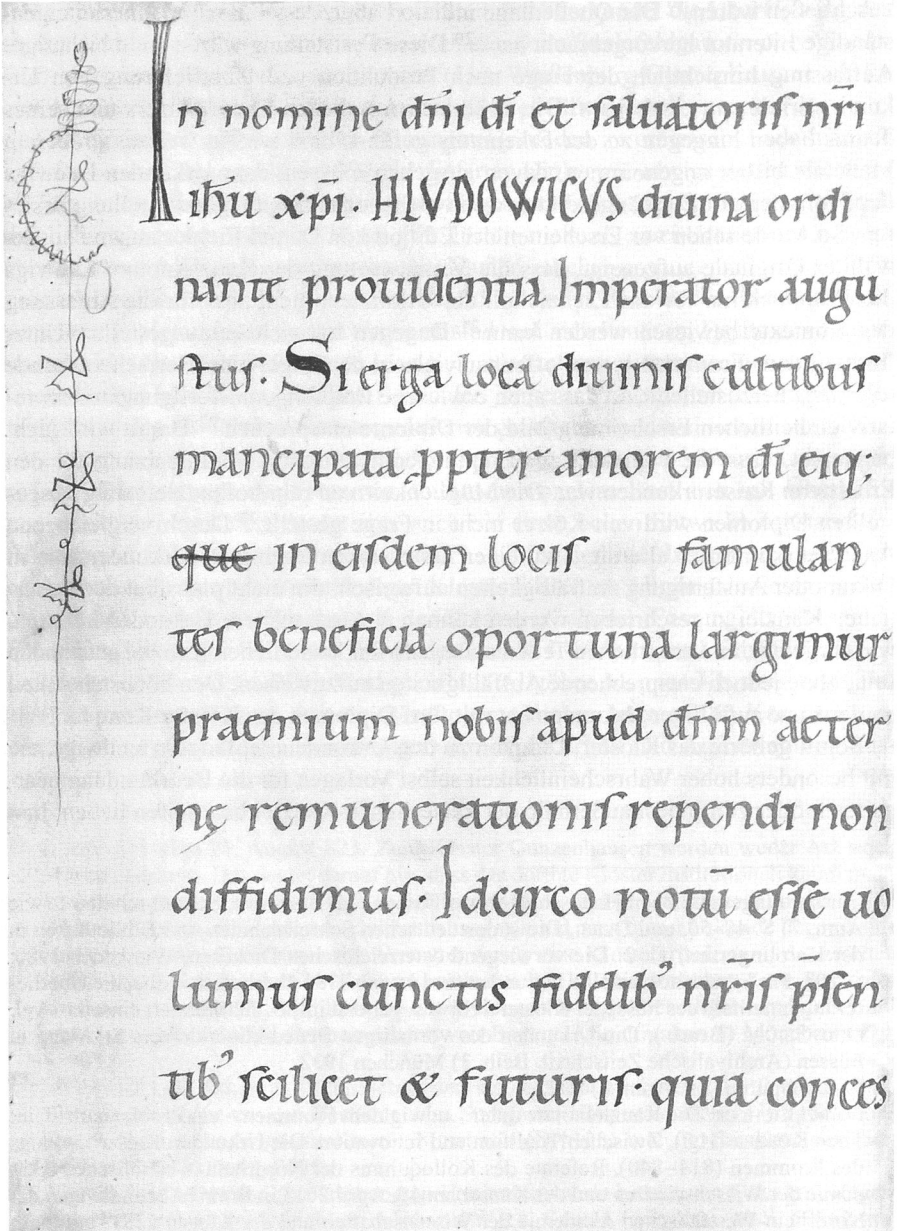 In nomine dn̄i dī et saluatoris nr̄i
ihū xp̄i HLVDOWICVS diuina ordi
nante prouidentia Imperator augu
stus. Si erga loca diuinis cultibus
mancipata ꝓpter amorem dī eiq;
que in eisdem locis famulan
tes beneficia oportuna largimur
praemium nobis apud dn̄m aeter
nę remunerationis rependi non
diffidimus. Idcirco notū esse uo
lumus cunctis fidelib; nr̄is p̄sen
tib; scilicet & futuris. quia conces